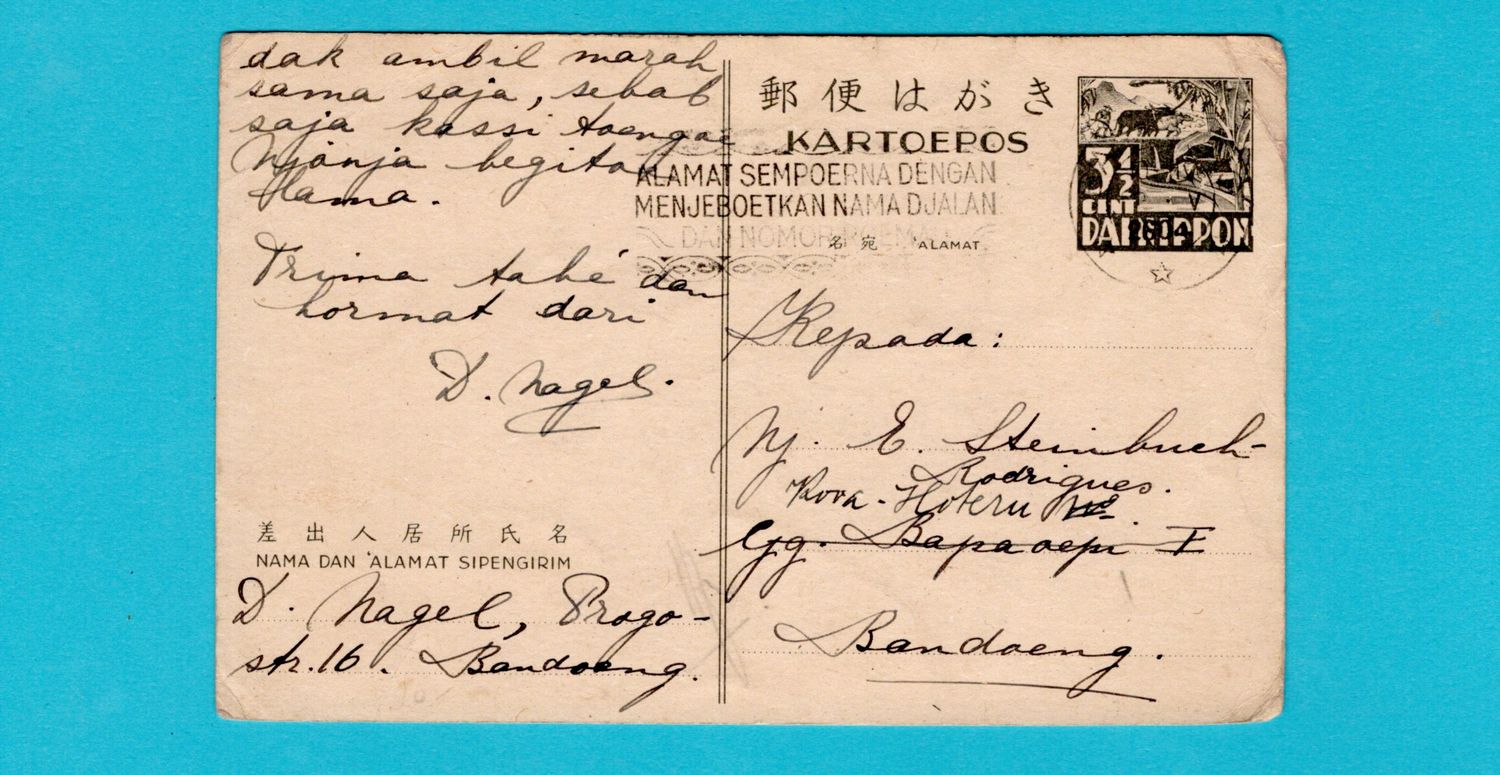 dak ambil marah
sama saja, sebab
saja kassi toenggoe
Njonja begitoe
lama.
Trima tabé dan
hormat dari
D. Nagel.
差出人居所氏名
NAMA DAN 'ALAMAT SIPENGIRIM
D. Nagel, Progo-
str. 16. Bandoeng.
郵便はがき
KARTOEPOS
ALAMAT SEMPOERNA DENGAN
MENJEBOETKAN NAMA DJALAN
DAN NOMOR ROEMAH
名宛 'ALAMAT
3 1/2
CENT
DAI NIPPON
Kepada:
Nj. E. Steinbuch-
Rodrigues.
Hoteru
Gg. Bapa Oepi I
Bandoeng.